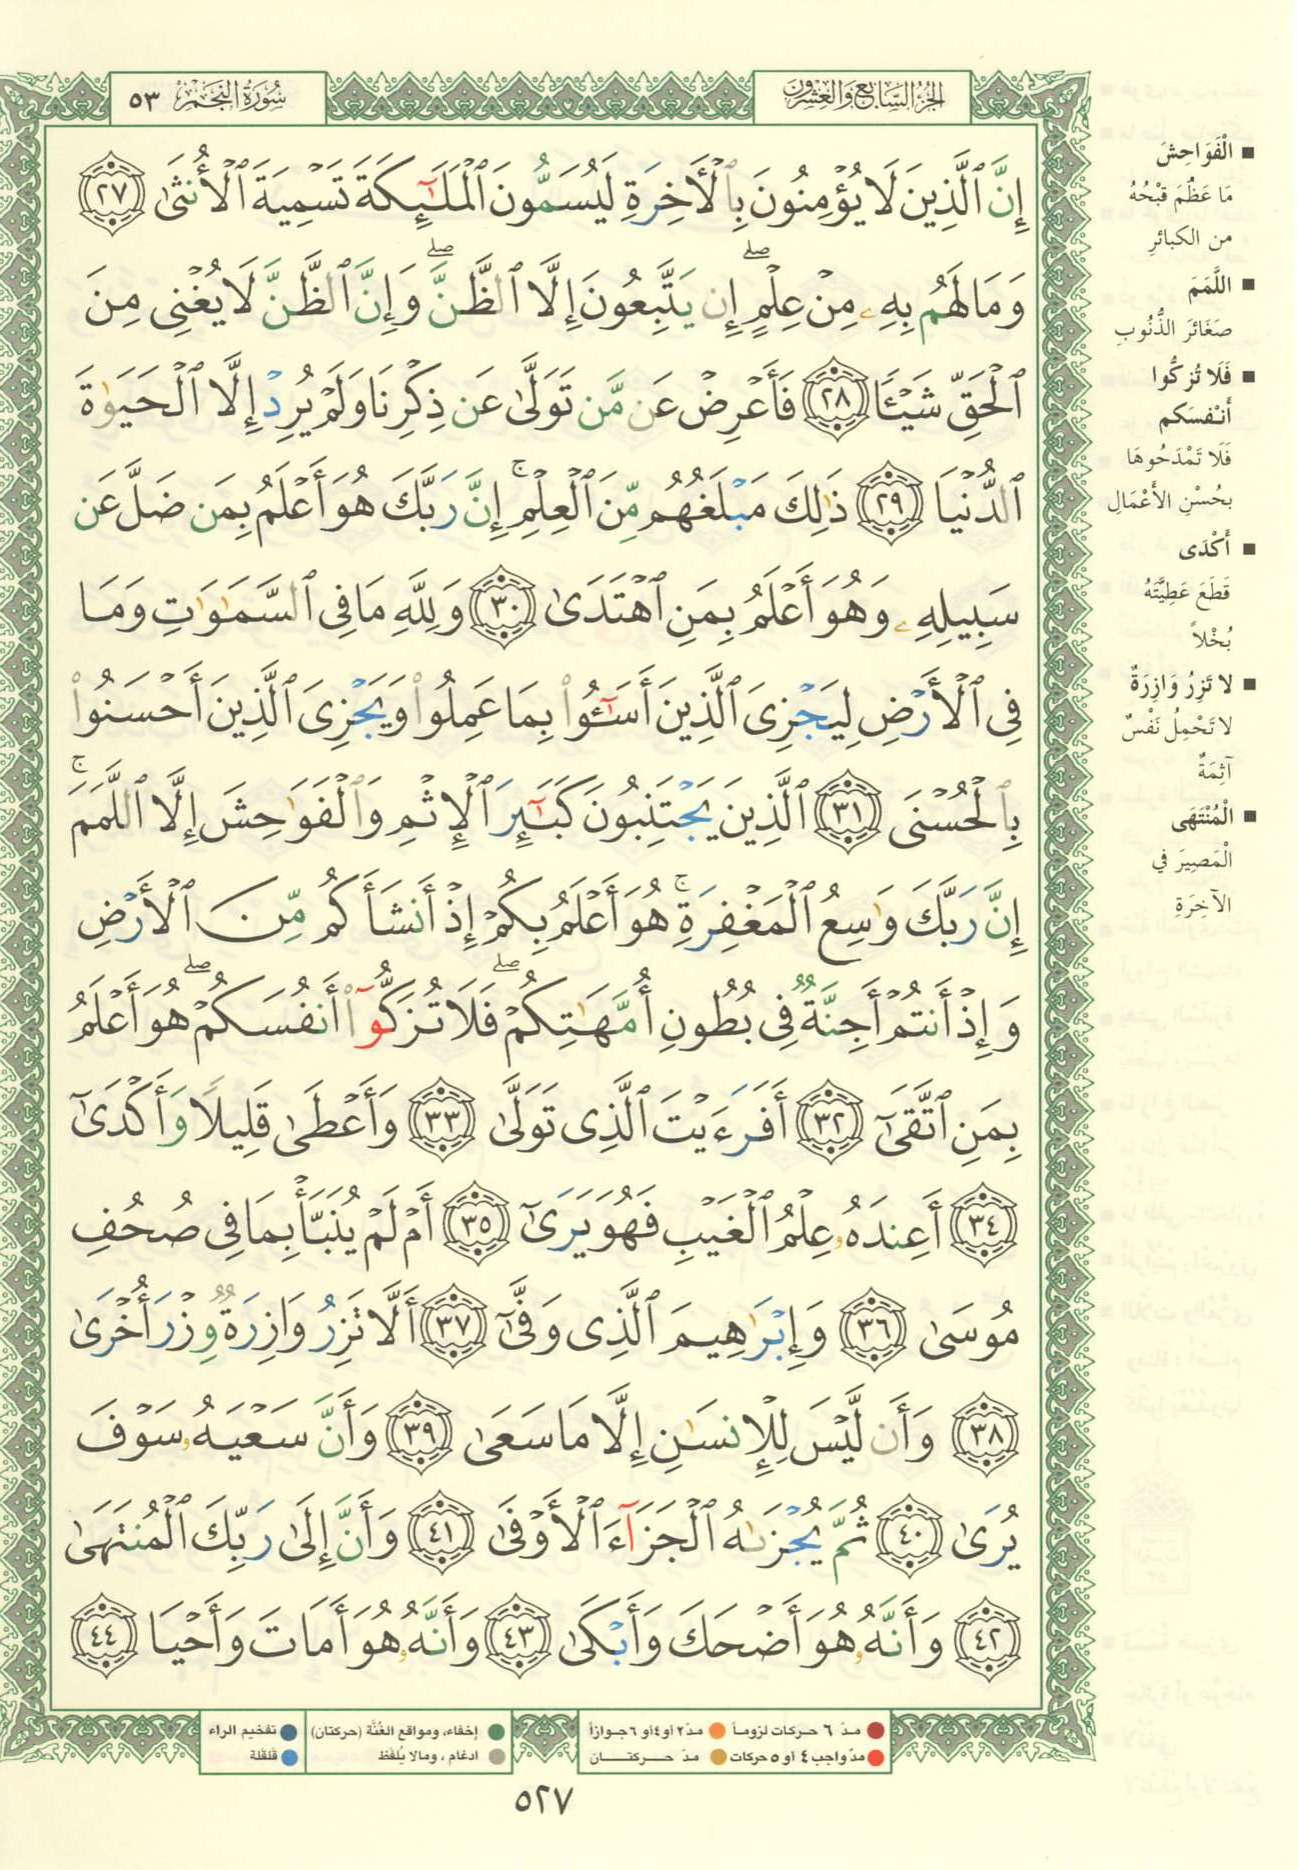 الجزء السابع والعشرون
سورة النجم ٥٣
إِنَّ ٱلَّذِينَ لَا يُؤْمِنُونَ بِٱلْأَخِرَةِ لَيُسَمُّونَ ٱلْمَلَـٰٓئِكَةَ تَسْمِيَةَ ٱلْأُنثَىٰ ٢٧
وَمَا لَهُم بِهِۦ مِنْ عِلْمٍ ۖ إِن يَتَّبِعُونَ إِلَّا ٱلظَّنَّ ۖ وَإِنَّ ٱلظَّنَّ لَا يُغْنِى مِنَ
ٱلْحَقِّ شَيْـًٔا ٢٨ فَأَعْرِضْ عَن مَّن تَوَلَّىٰ عَن ذِكْرِنَا وَلَمْ يُرِدْ إِلَّا ٱلْحَيَوٰةَ
ٱلدُّنْيَا ٢٩ ذَٰلِكَ مَبْلَغُهُم مِّنَ ٱلْعِلْمِ ۚ إِنَّ رَبَّكَ هُوَ أَعْلَمُ بِمَن ضَلَّ عَن
سَبِيلِهِۦ وَهُوَ أَعْلَمُ بِمَنِ ٱهْتَدَىٰ ٣٠ وَلِلَّهِ مَا فِى ٱلسَّمَـٰوَٰتِ وَمَا
فِى ٱلْأَرْضِ لِيَجْزِىَ ٱلَّذِينَ أَسَـٰٓـُٔوا۟ بِمَا عَمِلُوا۟ وَيَجْزِىَ ٱلَّذِينَ أَحْسَنُوا۟
بِٱلْحُسْنَى ٣١ ٱلَّذِينَ يَجْتَنِبُونَ كَبَـٰٓئِرَ ٱلْإِثْمِ وَٱلْفَوَٰحِشَ إِلَّا ٱللَّمَمَ ۚ
إِنَّ رَبَّكَ وَٰسِعُ ٱلْمَغْفِرَةِ ۚ هُوَ أَعْلَمُ بِكُمْ إِذْ أَنشَأَكُم مِّنَ ٱلْأَرْضِ
وَإِذْ أَنتُمْ أَجِنَّةٌ فِى بُطُونِ أُمَّهَـٰتِكُمْ ۖ فَلَا تُزَكُّوٓا۟ أَنفُسَكُمْ ۖ هُوَ أَعْلَمُ
بِمَنِ ٱتَّقَىٰٓ ٣٢ أَفَرَءَيْتَ ٱلَّذِى تَوَلَّىٰ ٣٣ وَأَعْطَىٰ قَلِيلًا وَأَكْدَىٰٓ
٣٤ أَعِندَهُۥ عِلْمُ ٱلْغَيْبِ فَهُوَ يَرَىٰٓ ٣٥ أَمْ لَمْ يُنَبَّأْ بِمَا فِى صُحُفِ
مُوسَىٰ ٣٦ وَإِبْرَٰهِيمَ ٱلَّذِى وَفَّىٰٓ ٣٧ أَلَّا تَزِرُ وَازِرَةٌ وِزْرَ أُخْرَىٰ
٣٨ وَأَن لَّيْسَ لِلْإِنسَـٰنِ إِلَّا مَا سَعَىٰ ٣٩ وَأَنَّ سَعْيَهُۥ سَوْفَ
يُرَىٰ ٤٠ ثُمَّ يُجْزَىٰهُ ٱلْجَزَآءَ ٱلْأَوْفَىٰ ٤١ وَأَنَّ إِلَىٰ رَبِّكَ ٱلْمُنتَهَىٰ
٤٢ وَأَنَّهُۥ هُوَ أَضْحَكَ وَأَبْكَىٰ ٤٣ وَأَنَّهُۥ هُوَ أَمَاتَ وَأَحْيَا ٤٤
■ الْفَوَاحِشَ
مَا عَظُمَ قُبْحُهُ
من الكبائرِ
■ اللَّمَمَ
صَغَائرَ الذُّنُوبِ
■ فَلَا تُزَكُّوا
أَنْفُسَكم
فَلَا تَمْدَحُوهَا
بِحُسْنِ الأَعْمَالِ
■ أَكْدَى
قَطَعَ عَطِيَّتَهُ
بُخْلاً
■ لا تَزِرُ وَازِرَةٌ
لا تَحْمِلُ نَفْسٌ
آثِمَةٌ
■ الْمُنْتَهَى
الْمَصِيرَ في
الآخِرَةِ
مدّ ٦ حركات لزوماً ● مدّ٢ أو٤أو ٦جوازاً
مدّ واجب ٤ أو ٥ حركات ● مدّ حركتان
إخفاء، ومواقع الغُنَّة (حركتان) ● تفخيم الراء
ادغام ، ومالا يُلفَظ ● قلقلة
٥٢٧